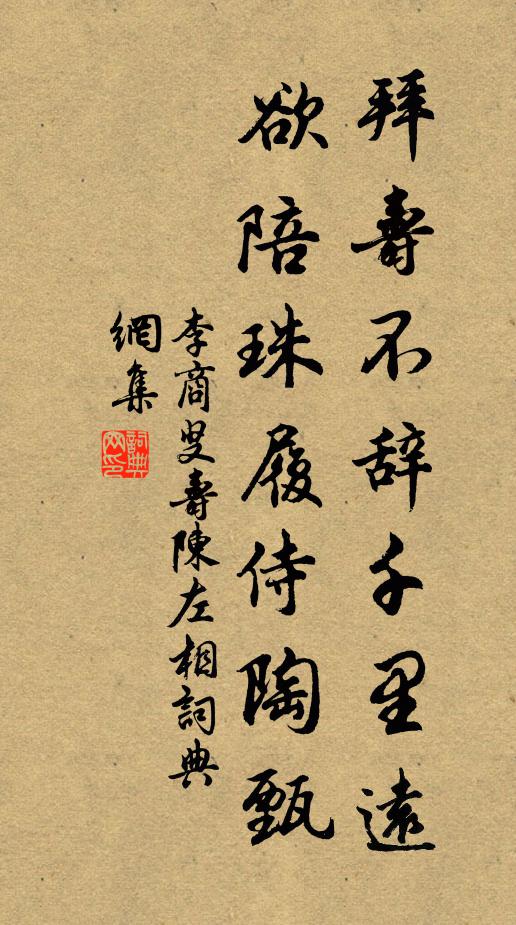 拜壽不辞千里遠
欲陪珠履侍陶甄
李商叟壽陳左相詞典
網集
詞典網印